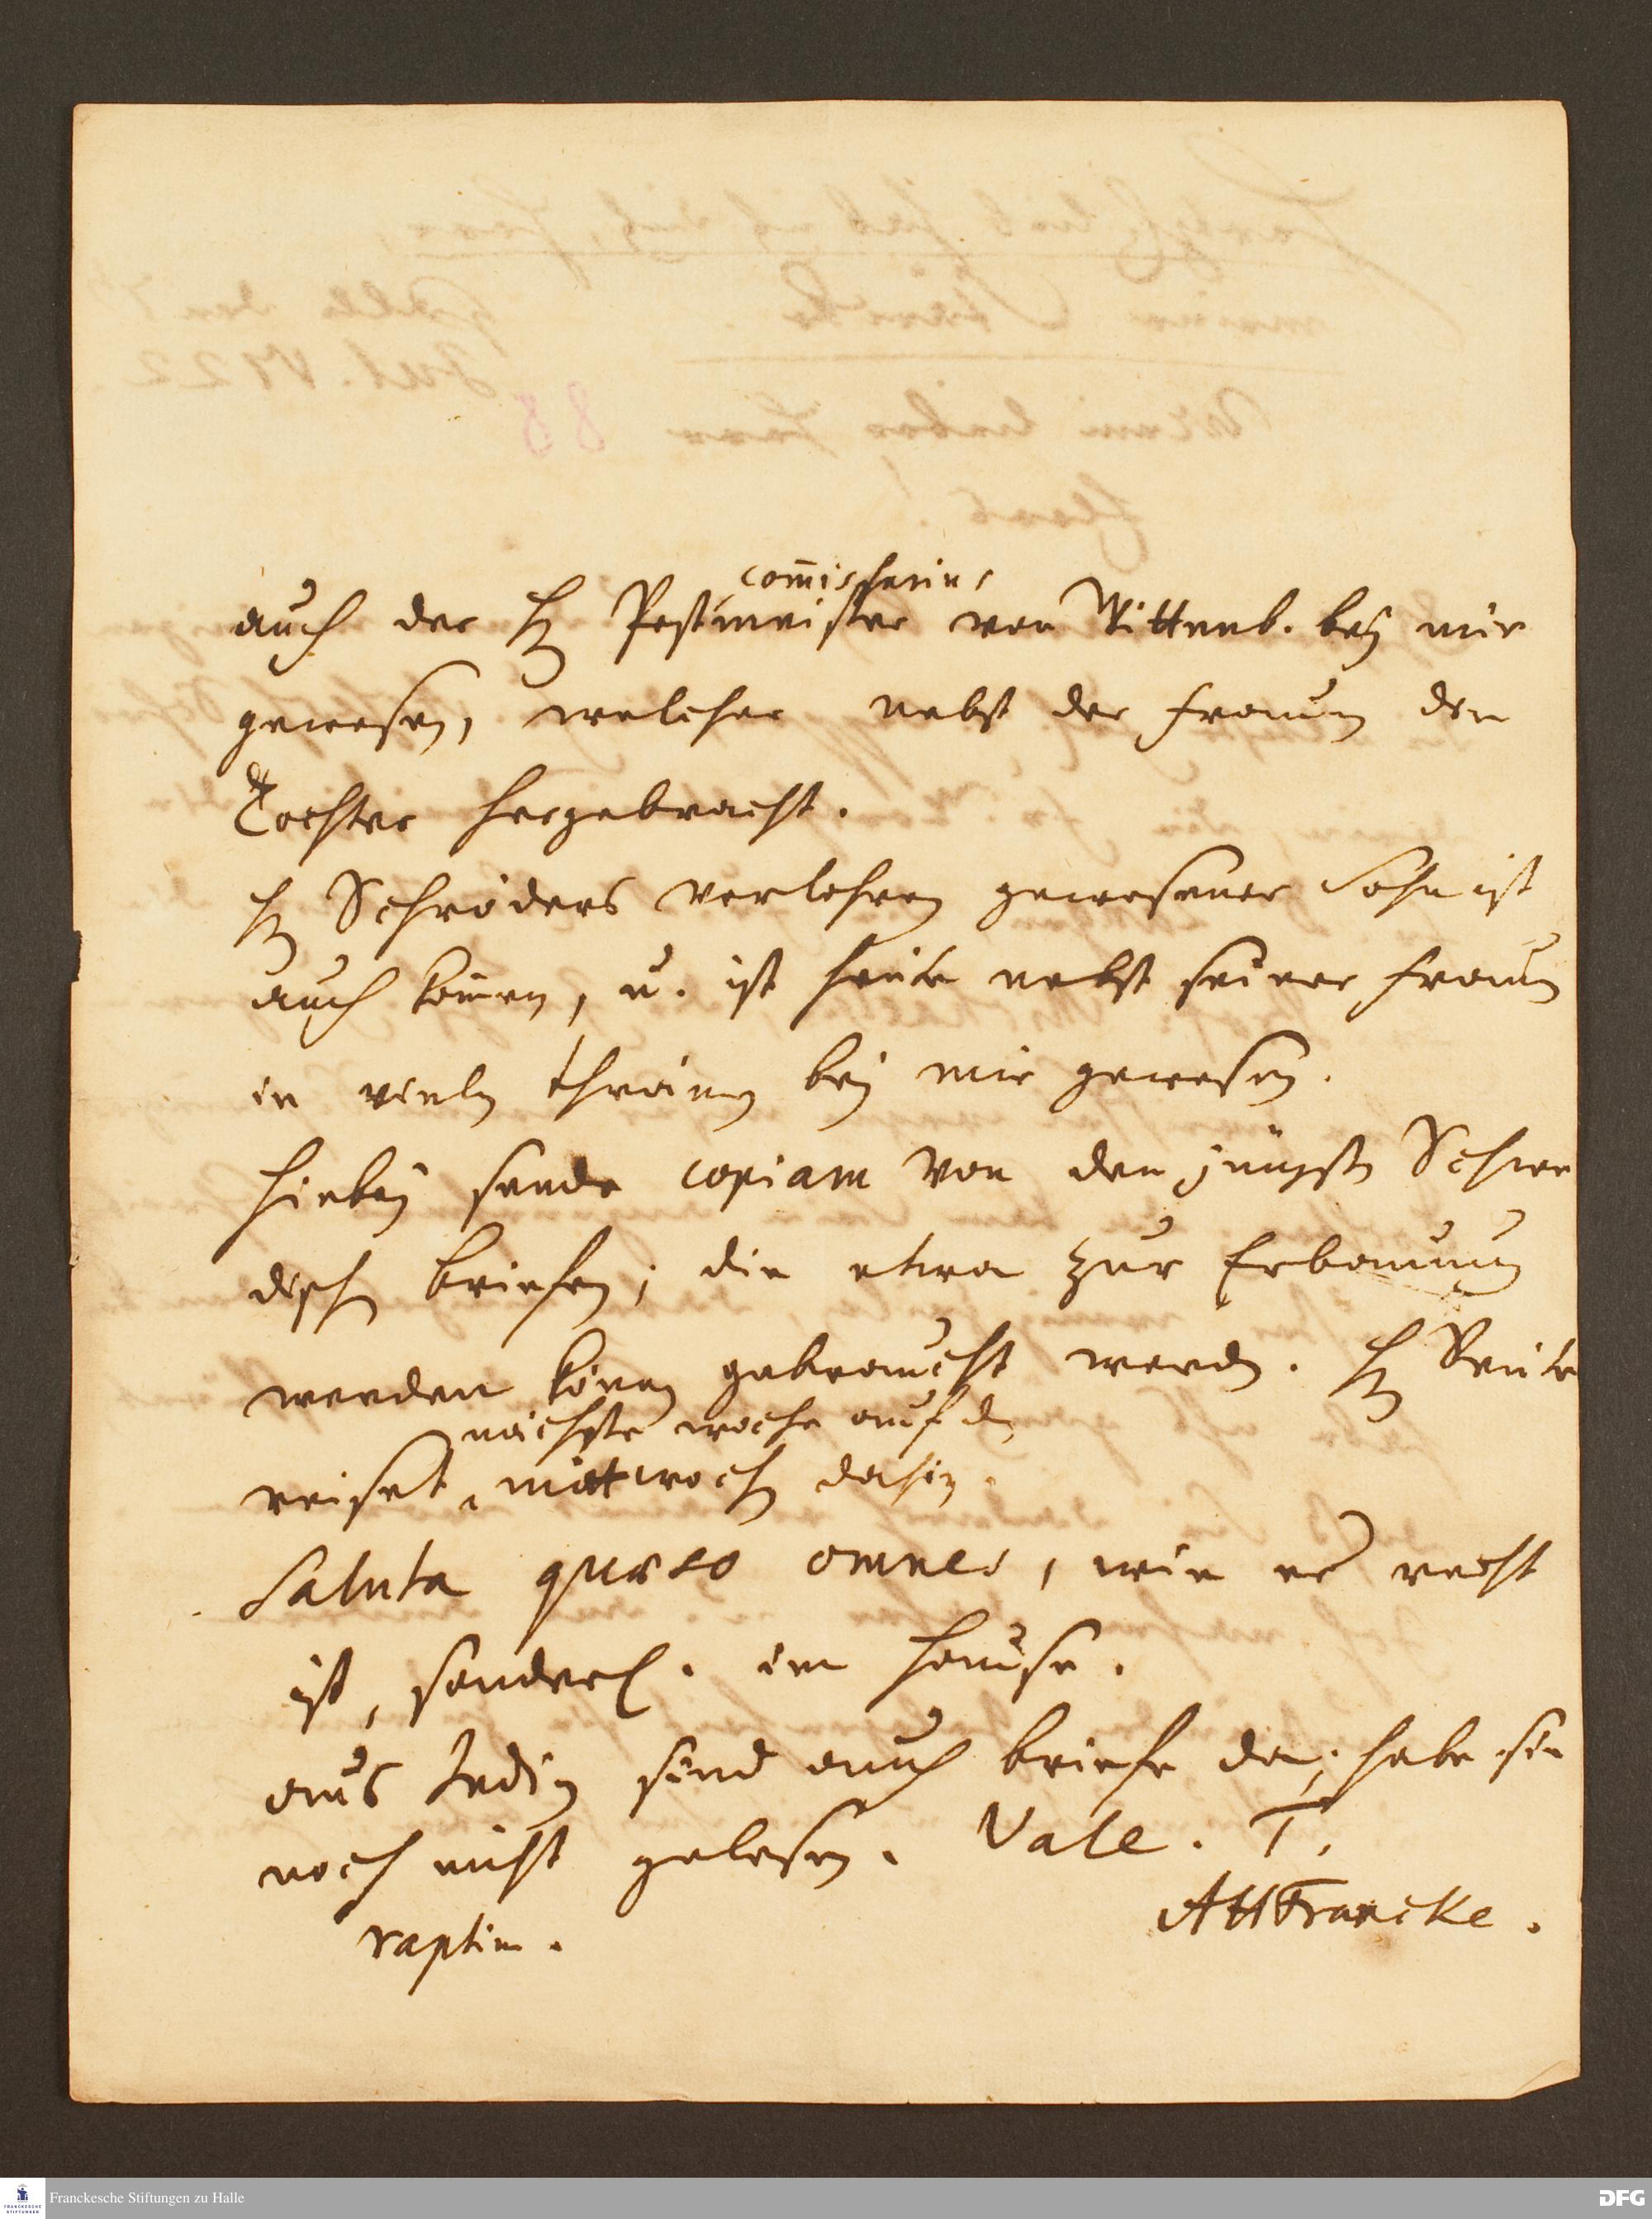 commissarius
auch der H. Postmeister von Wittenb. bey mir
gewesen, welcher nebst der Frauen den
Tochter hergebracht.
H. Schröders verlohren gewesener Sohn ist
auch kom̄en, u. ist heute nebst seiner Frauen
in vielen thränen bey mir gewesen.
Hiebey sende copiam von den jüngsten Schwe
dischen briefen; die etwa zur Erbauung
werden kön̄en gebraucht werden. H.
nächste woche auf den
reiset mittwoch dahin.
Saluta quaeso omnes, wie es recht
ist, sonderl. im Hause.
aus Indien sind auch briefe da; habe sie
noch nicht gelesen. Vale. T.
AHFrancke.
raptim.
Franckesche Stiftungen zu Halle
FRANCKESCHE STIFTUNGEN
DFG